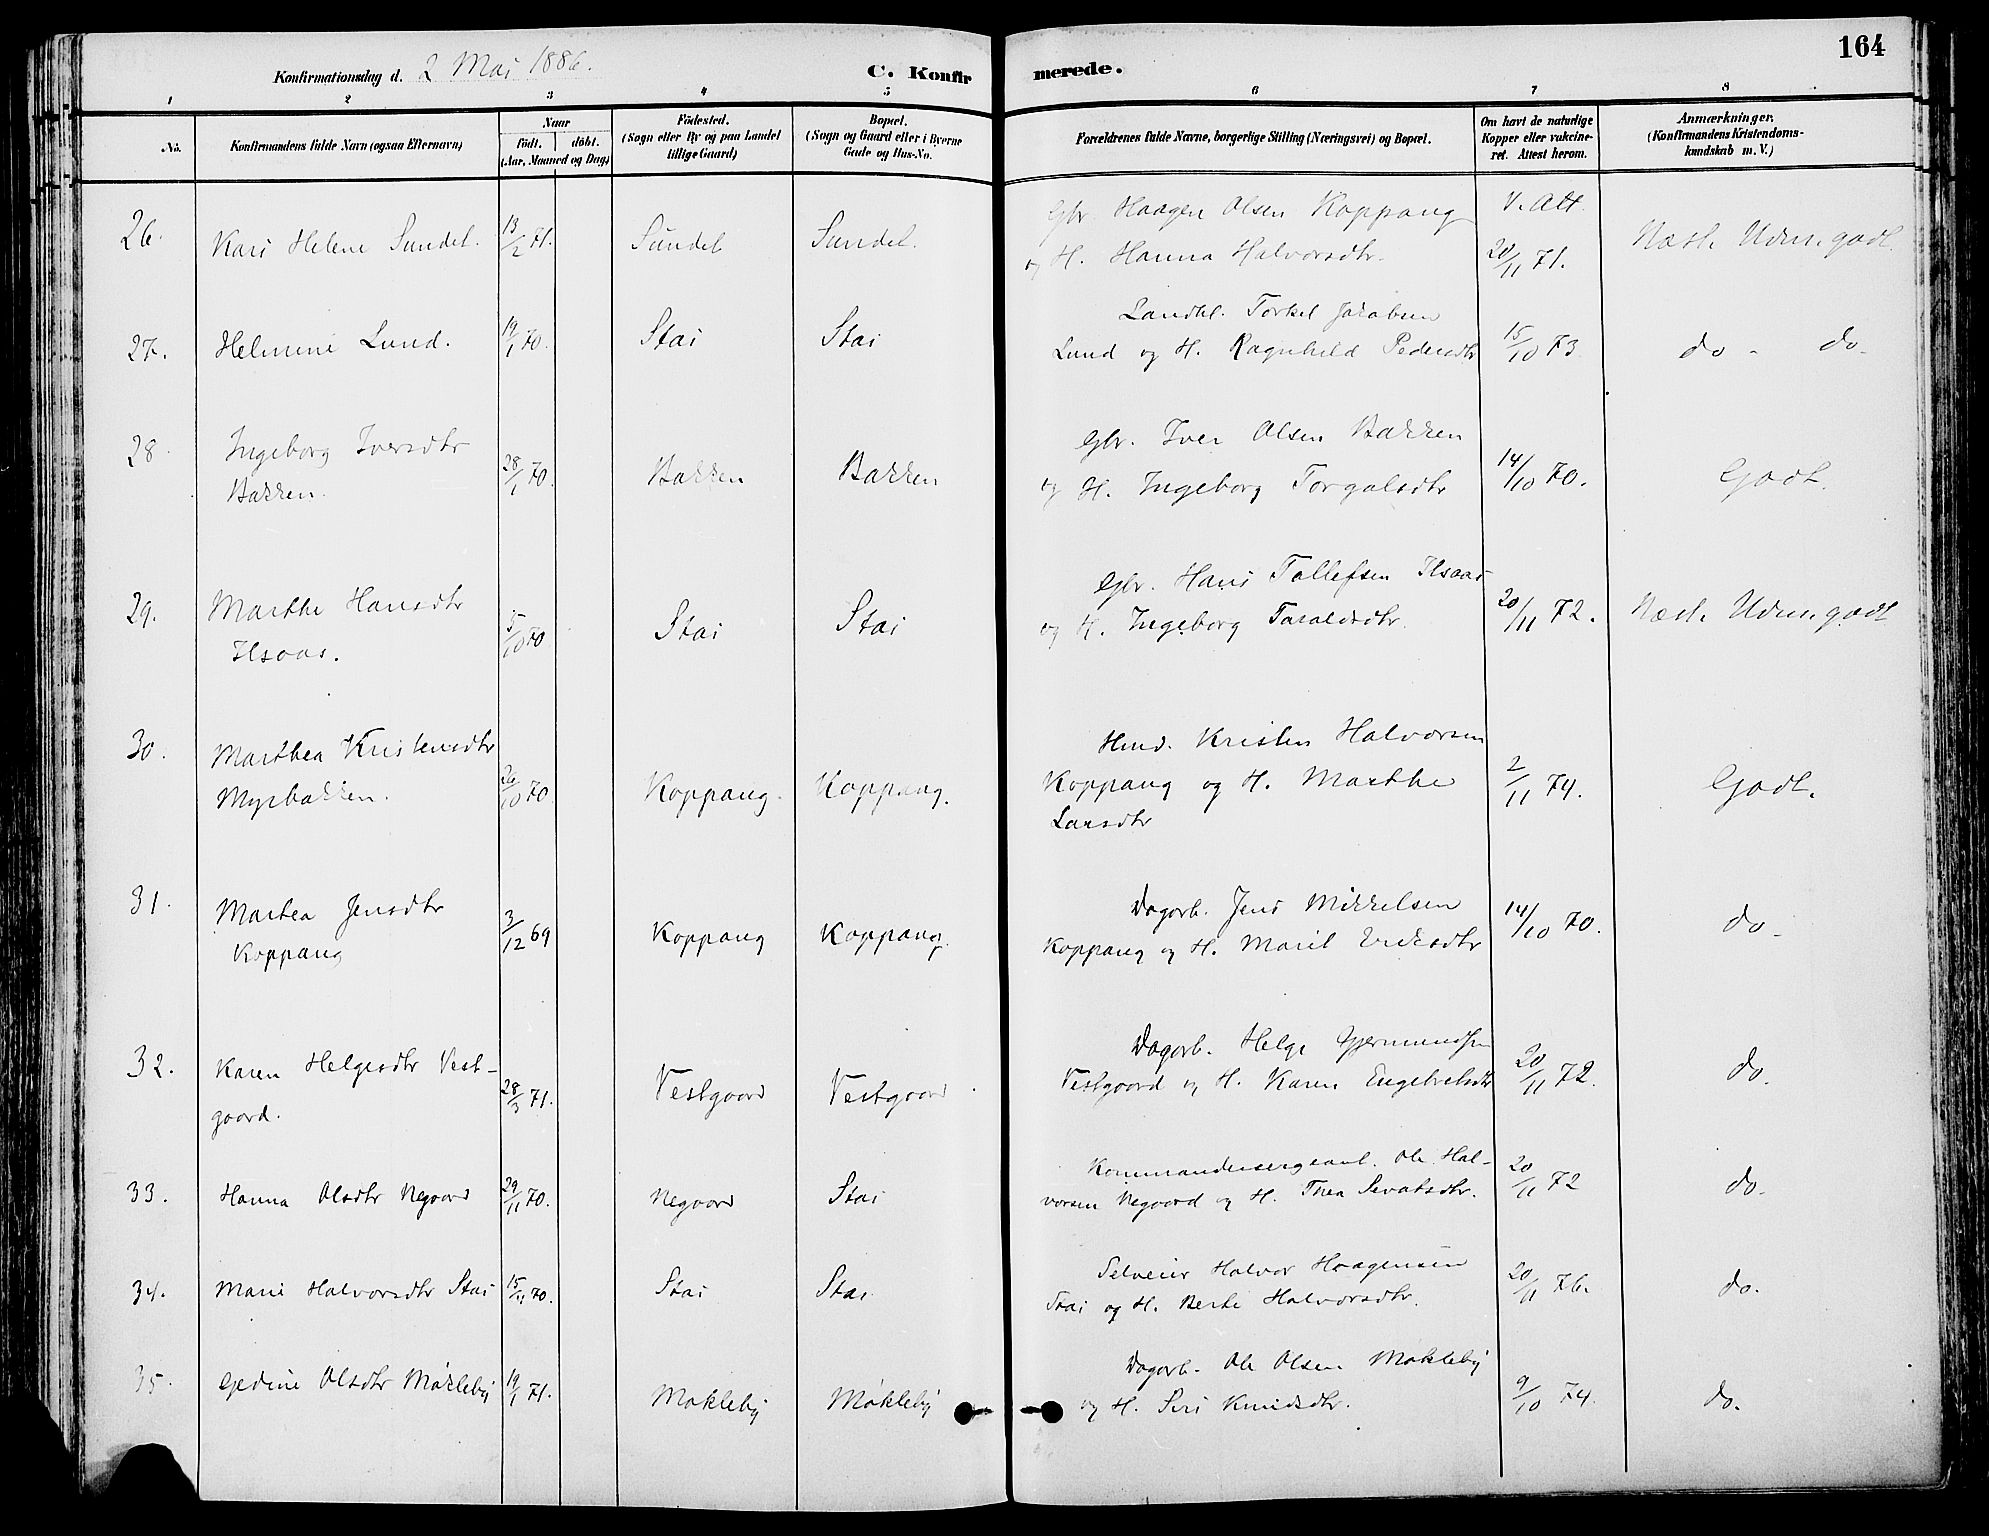 164
Konfirmationsdag d. 2 Mai 1886.
C. Konfirmerede.
1 2 3 4 5 6 7 8
No.
Konfirmandens fulde Navn (ogsaa Efternavn)
Naar
født. døbt.
(Aar, Maaned og Dag)
Födested.
(Sogn eller By og paa Landet
tillige Gaard)
Bopæl.
(Sogn og Gaard eller i Byerne
Gade og Hus-No.
Forældrenes fulde Navne, borgerlige Stilling (Næringsvei) og Bopæl.
Om havt de naturlige
Kopper eller vakcine-
ret. Attest herom.
Anmærkninger.
(Konfirmandens Kristendoms-
kundskab m. V.)
26. Kari Helene Sundet. 13/2 71. Sundet Sundet.
Gbr. Haagen Olsen Koppang
og H. Hanna Halvorsdtr.
V. Att.
20/11 71.
Næst. Udm. godt.
27. Helmine Lund. 19/1 70. Stai Stai
Landhl. Torkel Jacobsen
Lund og H. Ragnhild Pedersdtr
15/10 73
do - do.
28. Ingeborg Iversdtr
Bakken.
28/1 70. Bakken Bakken
Gbr. Iver Olsen Bakken
og H. Ingeborg Torgalsdtr
14/10 70.
Godt.
29. Marthe Hansdtr
Ilsaas.
5/10 70 Stai Stai
Gbr. Hans Tollefsen Ilsaas
og H. Ingeborg Taraldsdtr.
20/11 72.
Næst. Udm. godt
30. Marthea Kristensdtr
Myrbakken.
26/10 70 Koppang. Koppang.
Hmd. Kristen Halvorsen
Koppang og H. Marthe
Larsdtr
2/11 74.
Godt.
31. Martea Jensdtr
Koppang
3/12 69 Koppang Koppang.
Dagarb. Jens Mikkelsen
Koppang og H. Marit Eriksdtr
14/10 70.
do.
32. Karen Helgesdtr Vest-
gaard.
28/3 71. Vestgaard Vestgaard
Dagarb. Helge Gjermundsen
Vestgaard og H. Karen Engebretsdtr
20/11 72.
do.
33. Hanna Olsdtr Negaard 29/11 70. Negaard Stai
Kommandersergeant. Ole Hal-
vorsen Negaard og H. Thea Sevatsdtr.
20/11 72
do.
34. Marie Halvorsdtr Stai 15/11 70. Stai Stai
Selveier Halvor Haagensen
Stai og H. Berte Halvorsdtr.
20/11 76.
do.
35. Gedine Olsdtr Møkleby 19/1 71. Møkleby Møkleby
Dagarb. Ole Olsen Møkleby
og H. Siri Knudsdtr.
9/10 74.
do.